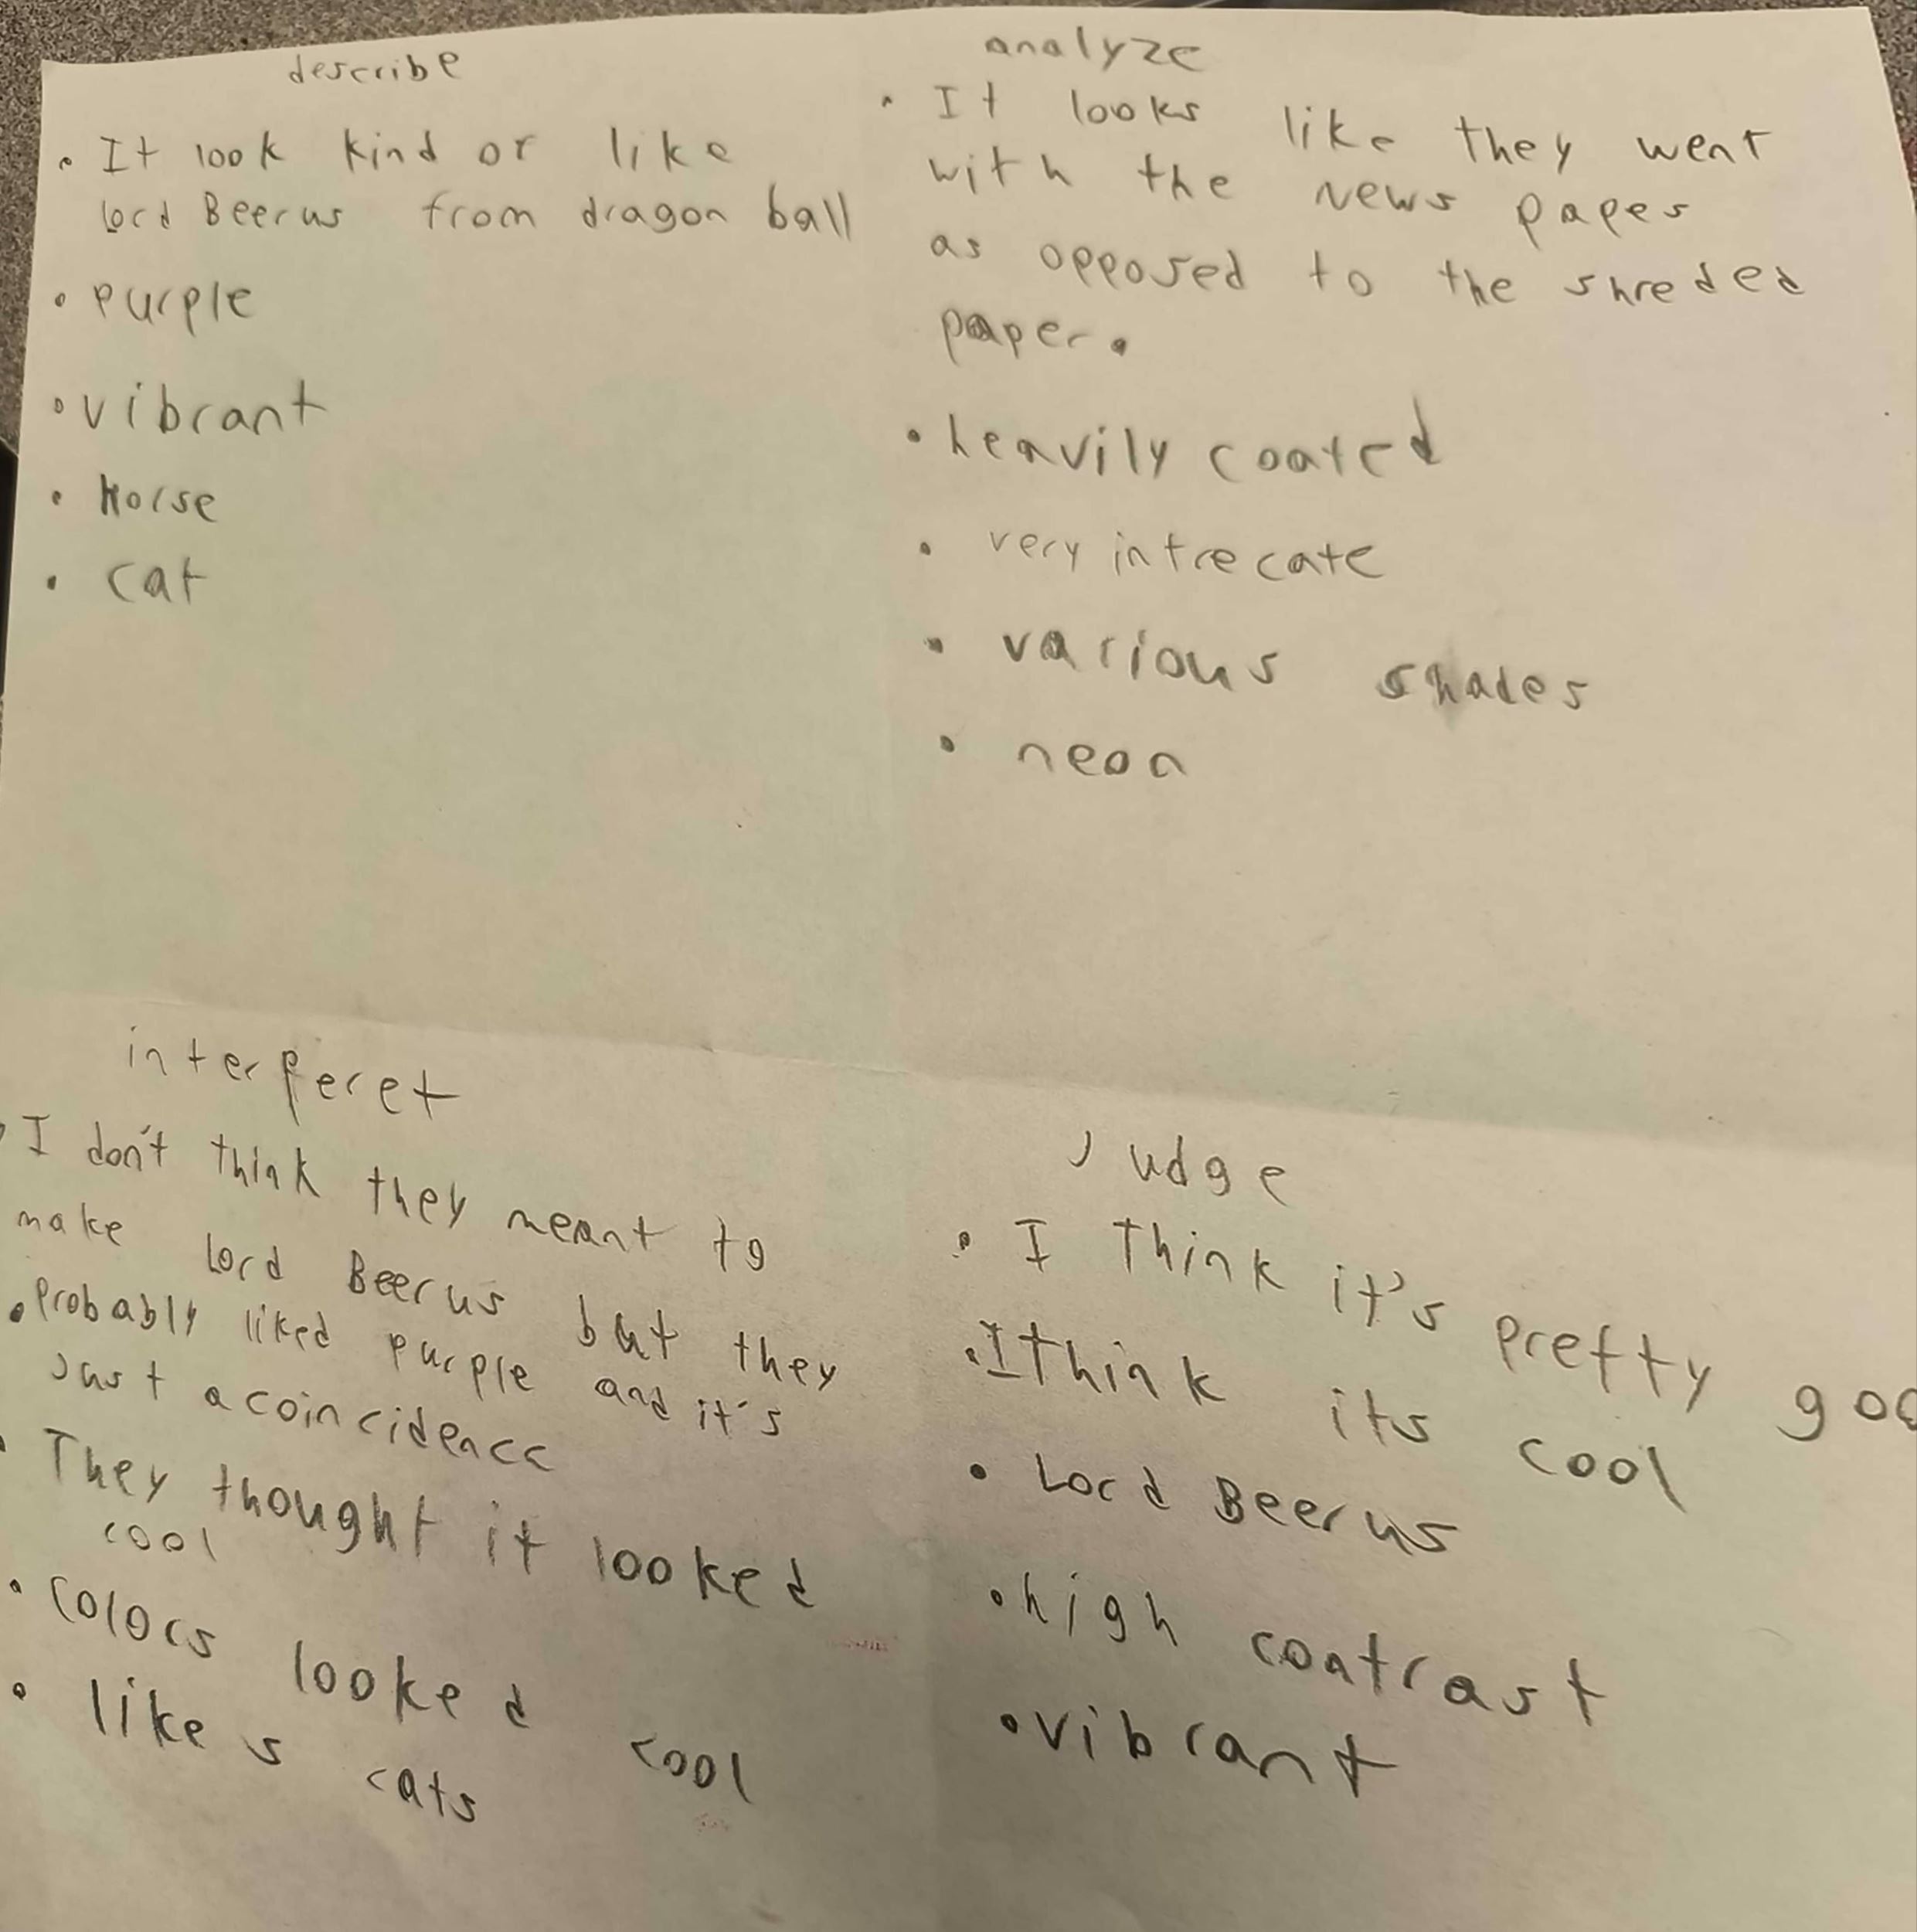 describe
• It look kind of like
lord Beerus from dragon ball
• purple
• vibrant
• horse
• cat
analyze
• It looks like they went
with the news papes
as opposed to the shreded
paper.
• heavily coated
• very intrecate
• various shades
• neon
interperet
• I don't think they meant to
make lord Beerus but they
• probably liked purple and it's
just a coincidence
• They thought it looked
cool
• colors looked cool
• likes cats
Judge
• I think it's pretty goo
• I think its cool
• Lord Beerus
• high contrast
• vibrant